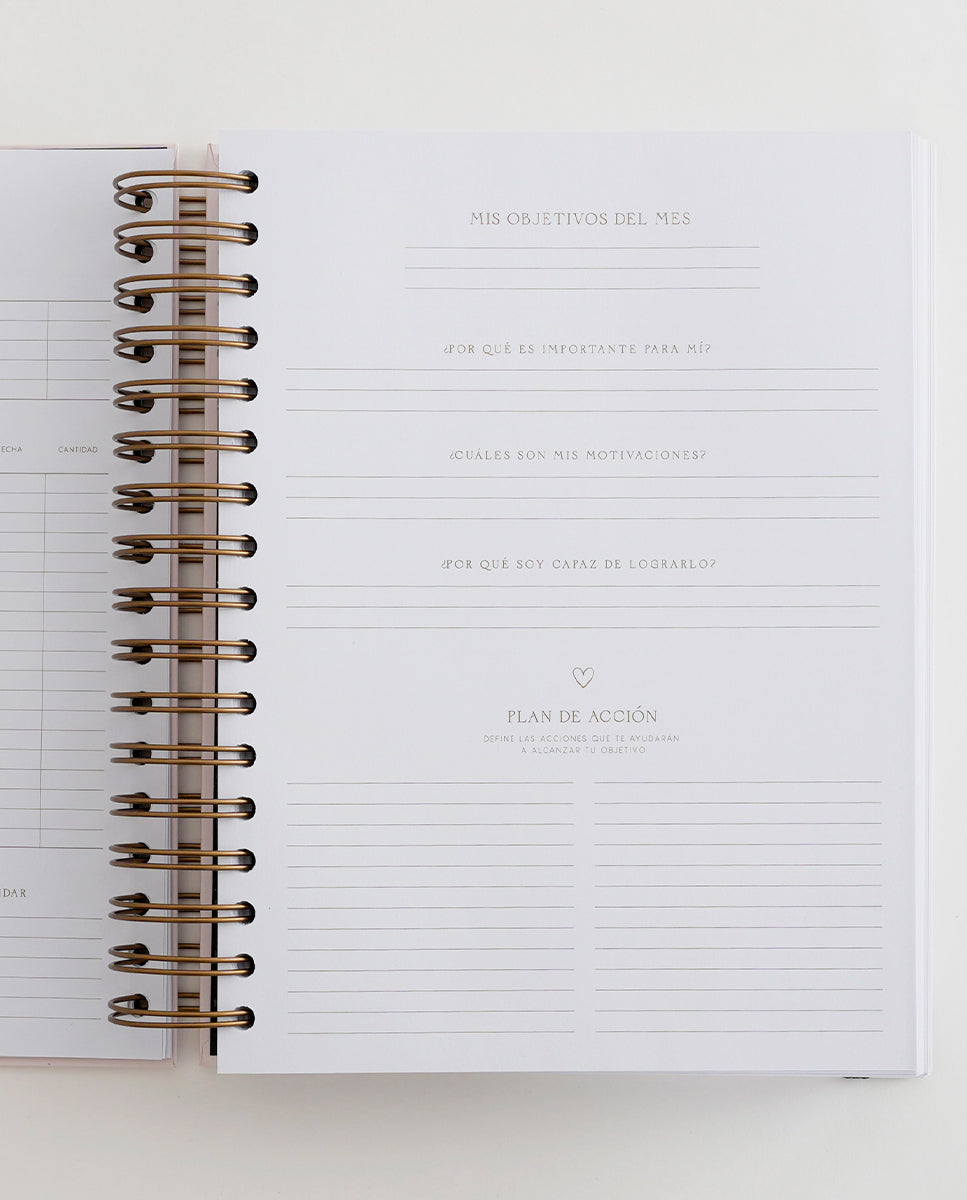 CANTIDAD
MIS OBJETIVOS DEL MES
¿POR QUÉ ES IMPORTANTE PARA MÍ?
¿CUÁLES SON MIS MOTIVACIONES?
¿POR QUÉ SOY CAPAZ DE LOGRARLO?
PLAN DE ACCIÓN
DEFINE LAS ACCIONES QUE TE AYUDARÁN
A ALCANZAR TU OBJETIVO